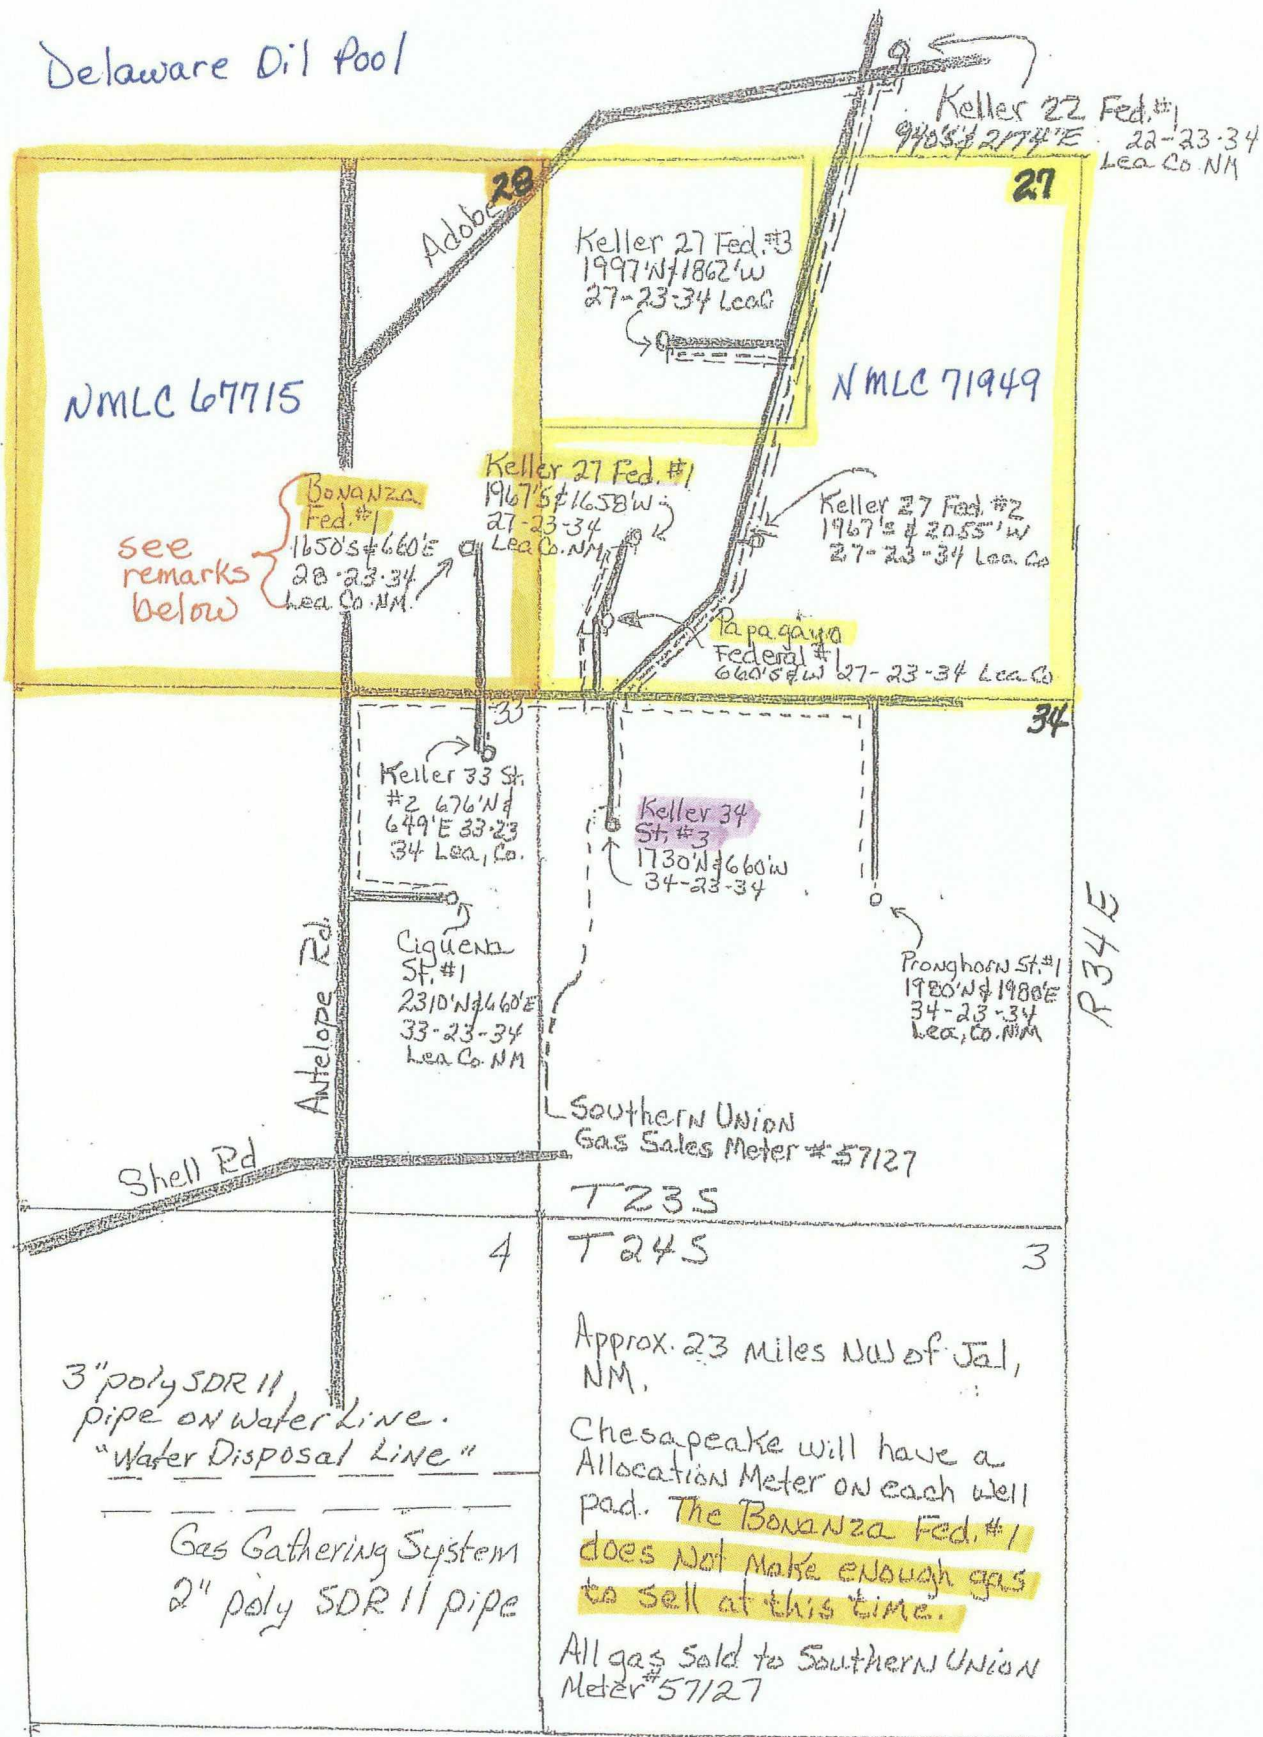 Delaware Oil Pool
Keller 22 Fed.#1
940'S & 2174'E 22-23-34
Lea Co. NM
28
27
Adobe
Keller 27 Fed.#3
1997'N & 1862'W
27-23-34 Lea C
NMLC 67715
NMLC 71949
Bonanza
Fed.#1
1650'S & 660'E
28-23-34
Lea Co. NM.
see
remarks
below
Keller 27 Fed.#1
1967'S & 1658'W
27-23-34
Lea Co. NM
Keller 27 Fed.#2
1967's & 2055'W
27-23-34 Lea Co
Papagayo
Federal #1
660'S & W 27-23-34 Lea Co
33
34
Keller 33 St.
#2 676'N &
649'E 33-23
34 Lea, Co.
Keller 34
St. #3
1730'N & 660'W
34-23-34
Ciguena
St. #1
2310'N & 660'E
33-23-34
Lea Co. NM
Pronghorn St.#1
1980'N & 1980'E
34-23-34
Lea, Co. NM
R34E
Antelope Rd.
Southern Union
Gas Sales Meter #57127
Shell Rd
T23S
T24S
4
3
3" poly SDR 11
pipe on Water Line.
"Water Disposal Line"
Gas Gathering System
2" poly SDR 11 pipe
Approx. 23 Miles NW of Jal,
NM.
Chesapeake will have a
Allocation Meter on each well
pad. The Bonanza Fed.#1
does Not Make enough gas
to sell at this time.
All gas Sold to Southern Union
Meter #57127